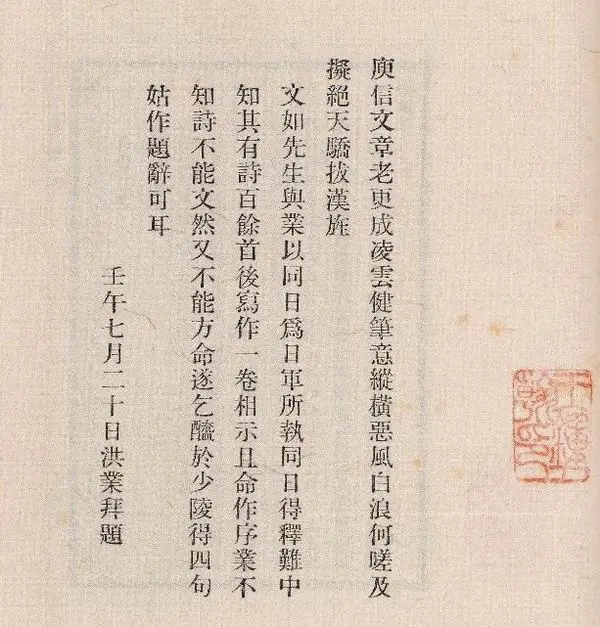 庾信文章老更成凌雲健筆意縱橫惡風白浪何嗟及
擬絕天驕拔漢旌
文如先生與業以同日爲日軍所執同日得釋難中
知其有詩百餘首後寫作一卷相示且命作序業不
知詩不能文然又不能方命遂乞醯於少陵得四句
姑作題辭可耳
壬午七月二十日洪業拜題